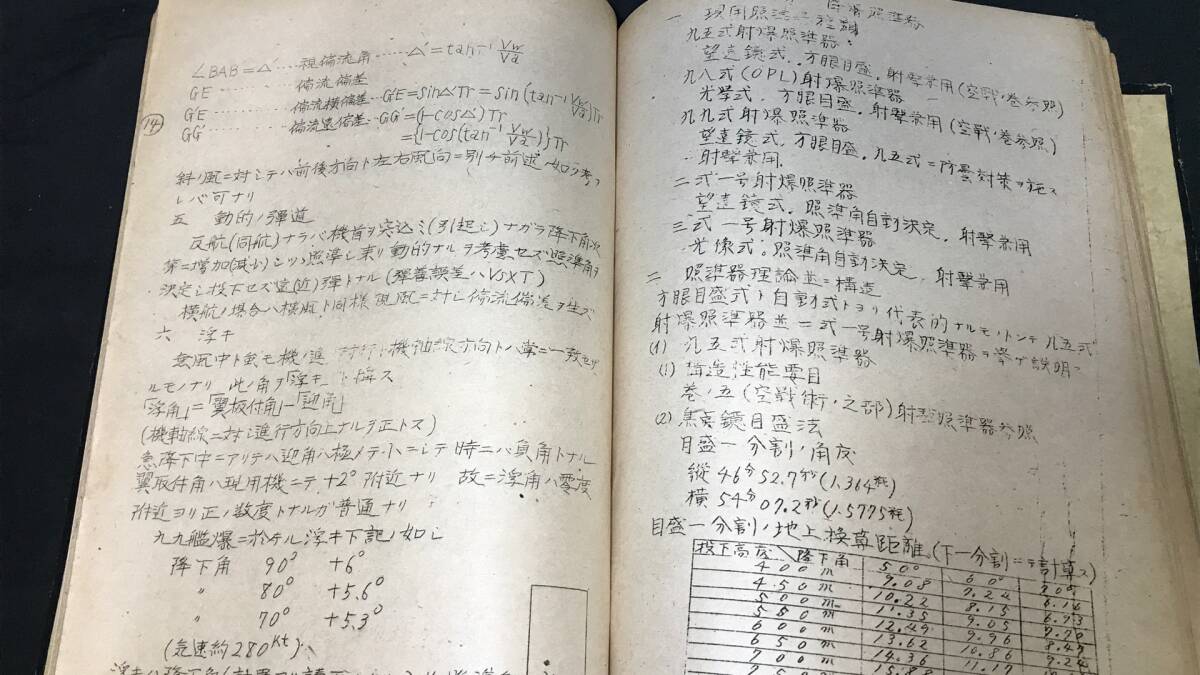 ∠BAB = Δ′ ‥‥ 視偏流角 ‥‥‥ Δ′ = tan⁻¹ Vw/Va
GE ‥‥‥‥ 偏流偏差
GE′ ‥‥‥‥ 偏流横偏差 ‥ GE′ = sinΔ′Tr = sin(tan⁻¹ Vw/Va)Tr
GG′ ‥‥‥‥ 偏流遠偏差 ‥ GG′ = (1-cosΔ′)Tr
= {1-cos(tan⁻¹ Vw/Va)}Tr
14
斜ノ風ニ対シテハ前後方向ト左右風向ニ別チ前述ノ如ク考フ
レバ可ナリ
五 動的ノ彈道
反航(同航)ナラバ機首ヲ突込ミ(引起シ)ナガラ降下角次
第ニ増加(減少)シツツ照準シ来リ動的ナルヲ考慮セズ照準角ヲ
決定シ投下セズ遠(近)彈トナル(彈着誤差ハVs×T)
横航ノ場合ハ横風ト同様風ニ対シ偏流偏差ヲ生ズ
六 浮キ
無風中ト雖モ機ノ進行方向ト機軸線方向トハ常ニ一致セザ
ルモノナリ 此ノ角ヲ「浮キ」ト稱ス
「浮角」=「翼取付角」-「迎角」
(機軸線ニ対シ進行方向上ナルヲ正トス)
急降下中ニアリテハ迎角ハ極メテ小ニシテ時ニハ負角トナル
翼取付角ハ現用機ニテ +2° 附近ナリ 故ニ浮角ハ零度
附近ヨリ正ノ数度トナルガ普通ナリ
九九艦爆ニ於テル浮キ下記ノ如シ
降下角 90° +6°
〃 80° +5.6°
〃 70° +5.3°
(気速約280Kt)
照準器
一 現用照準器ノ種類
九五式射爆照準器
望遠鏡式、方眼目盛、射撃兼用(空戰ノ巻参照)
九八式(OPL)射爆照準器
光学式、方眼目盛、射撃兼用(空戰ノ巻参照)
九九式射爆照準器
望遠鏡式、方眼目盛、九五式ニ防曇対策ヲ施ス
射撃兼用
二式一号射爆照準器
望遠鏡式、照準角自動決定、射撃兼用
三式一号射爆照準器
光像式、照準角自動決定、射撃兼用
二 照準器理論並ニ構造
方眼目盛式ト自動式トヨリ代表的ナルモノトシテ九五式
射爆照準器並ニ二式一号射爆照準器ヲ挙ゲ説明ス
(イ) 九五式射爆照準器
(1) 構造性能要目
巻ノ五(空戰術ノ之部)射撃照準器参照
(2) 焦点鏡目盛法
目盛一分割ノ角度
縦 46分52.7秒(1.364粍)
横 54分07.2秒(1.5775粍)
目盛一分割ノ地上換算距離(下一分割ニテ計算ス)
投下高度 降下角 50° 60° 70°
400m 9.08 7.24 6.16
450m 10.22 8.15 6.93
500m 11.35 9.05 7.70
550m 12.49 9.96 8.47
600m 13.62 10.86 9.24
650m 14.36 11.17
700m 15.88